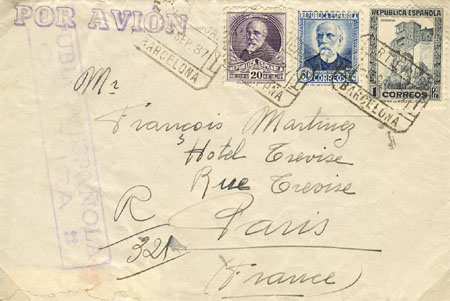 POR AVION
BARCELONA
20 CTS
REPUBLICA ESPAÑOLA
CORREOS
REPUBLICA ESPAÑOLA
1
CORREOS
BARCELONA
ESPAÑOLA
Mr
François Martinez
Hotel Trevise
Rue Trevise
R Paris
321
(France)